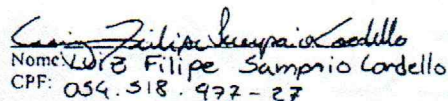 Luiz Filipe Sampaio Cordello
Nome: Luiz Filipe Sampaio Cordello
CPF: 054.518.977-27